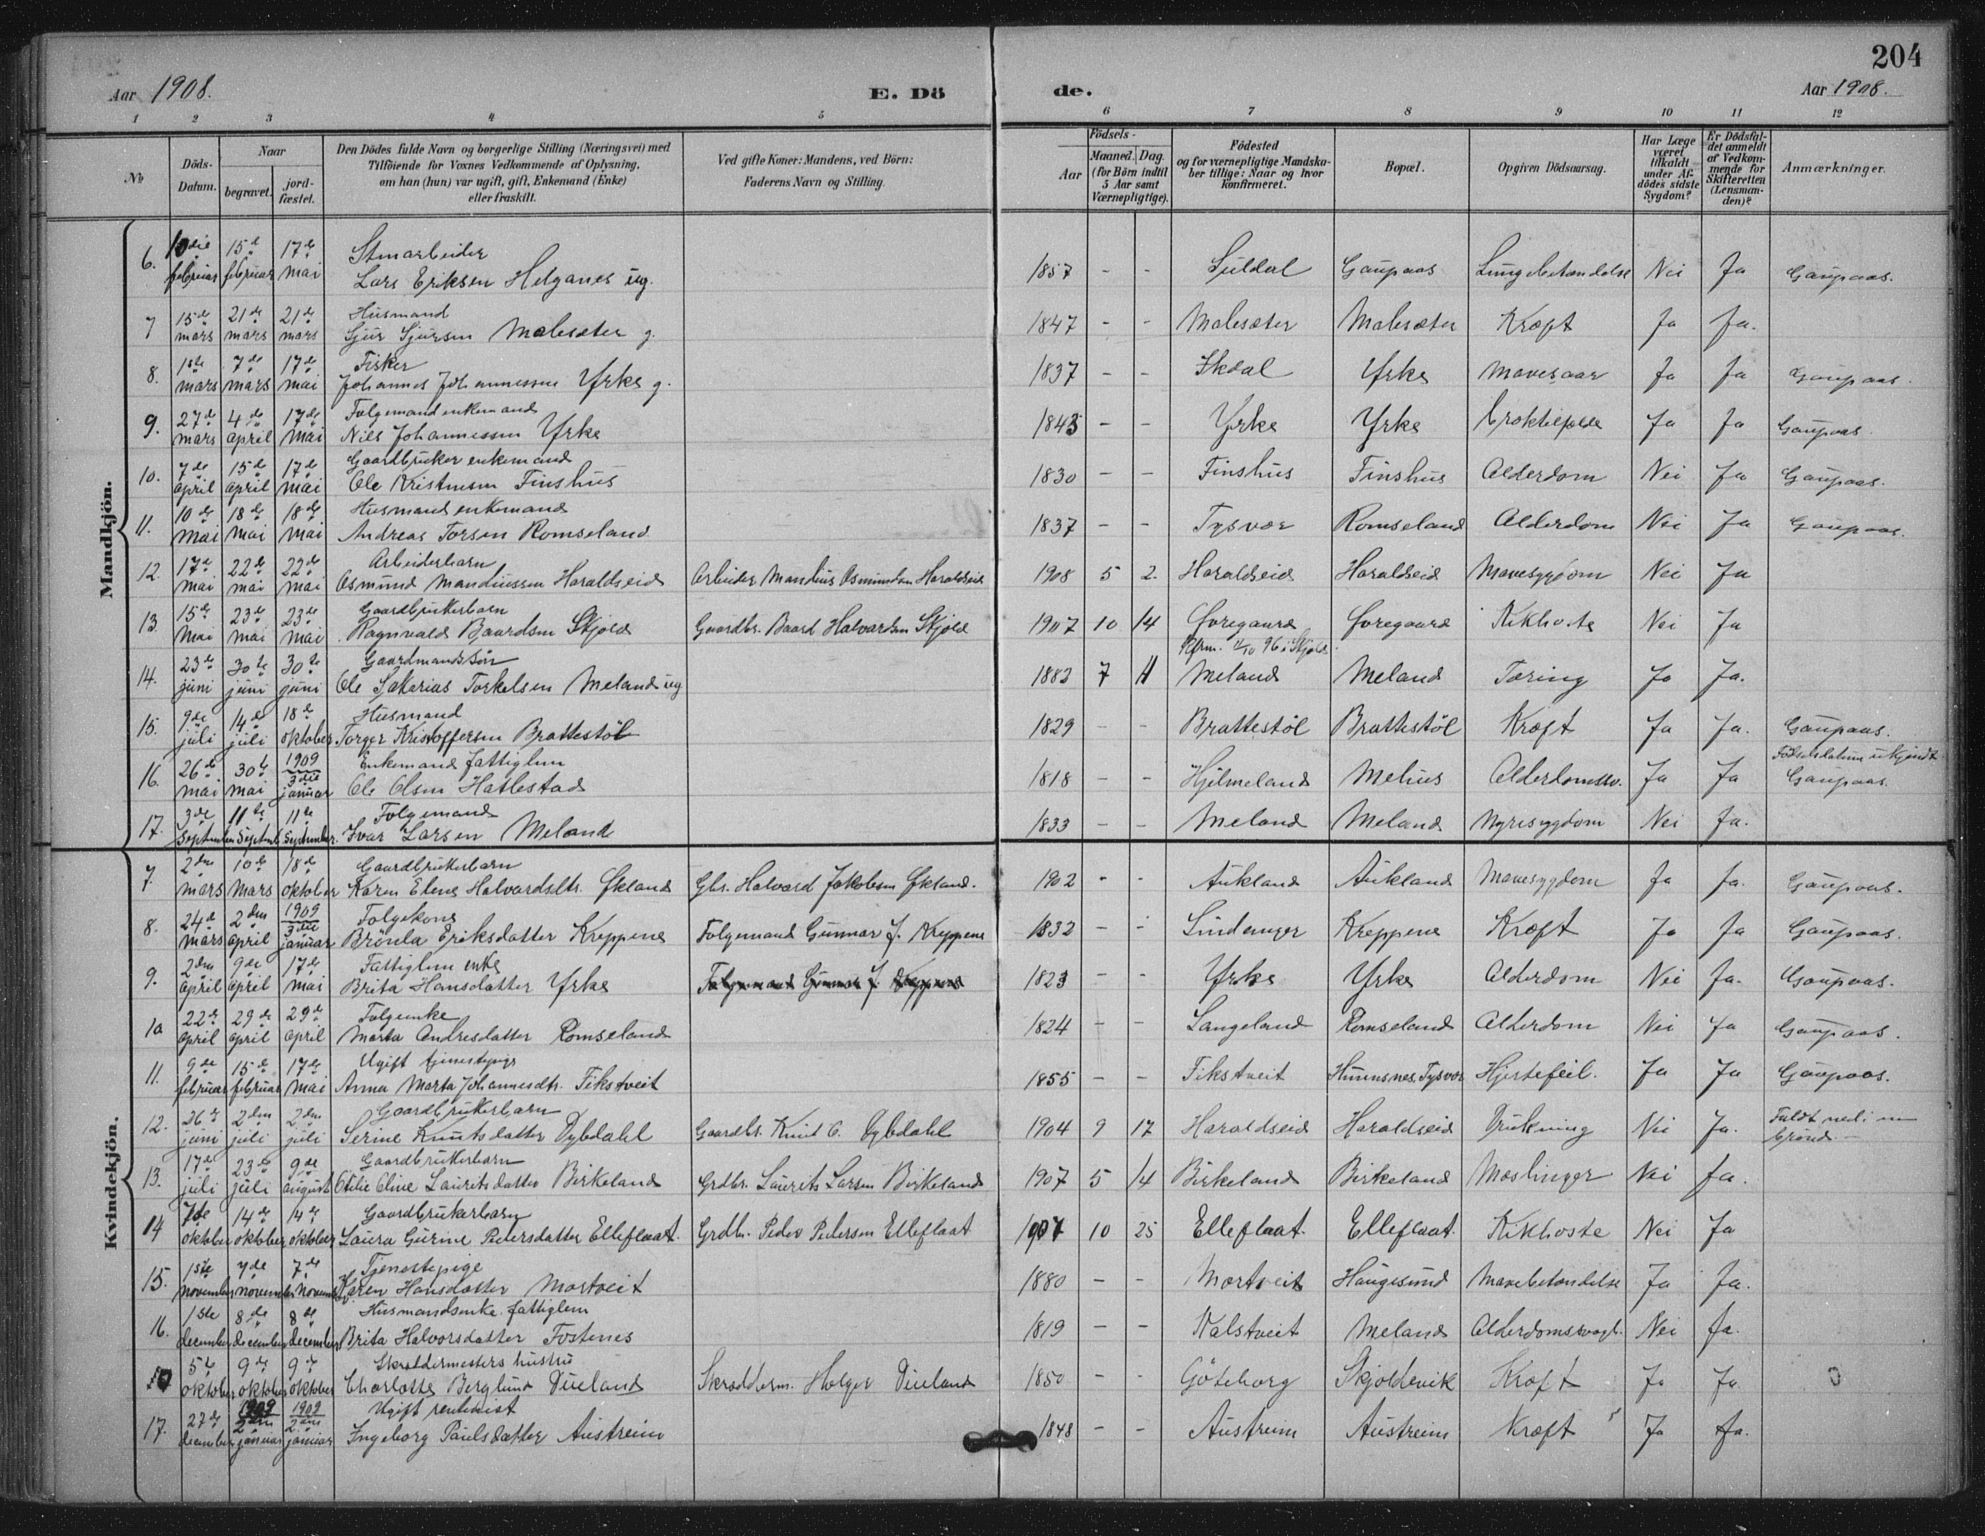 204
Aar 1908. E. Dö de. Aar 1908.
1 2 3 4 5 6 7 8 9 10 11 12
No Döds-Datum. Naar begravet. jord-fæstet. Den Dödes fulde Navn og borgerlige Stilling (Næringsvei) med Tilföiende for Voxnes Vedkommende af Oplysning, om han (hun) var ugift, gift, Enkemand (Enke) eller fraskilt. Ved gifte Koner: Mandens, ved Börn: Faderens Navn og Stilling. Födsels- Aar Maaned. Dag. (for Börn indtil 5 Aar samt Værnepligtige). Födested og for værnepligtige Mandskaber tillige: Naar og hvor konfirmeret. Bopæl. Opgiven Dödsaarsag. Har Læge været tilkaldt under Afdödes sidste Sygdom? Er Dödsfaldet anmeldt af Vedkommende for Skifteretten (Lensmanden)? Anmærkninger.
Mandkjön.
6. 10de februar 15de februar 17de mai Lars Eriksen Helganes ug. 1857 - - Suldal Gaupaas Lungebetændelse Nei Ja Gaupaas.
7 15de mars 21de mars 21de mars Husmand Sjur Sjursen Malesæter g. 1847 - - Malesæter Malesæter Kræft Ja Ja.
8. 1ste mars 7de mars 17de mai Fisker Johannes Johannessen Yrke g. 1837 - - Yrke Mavesaar Ja Ja Gaupaas.
9. 27de mars 4de april 17de mai Folgemand enkemand Niels Johannessen Yrke 1843 - - Yrke Yrke Ja Ja Gaupaas
10. 7de april 15de april 17de mai Gaardbruker enkemand Ole Kristensen Finshus 1830 - - Finshus Finshus Alderdom Nei Ja Gaupaas.
11. 10de mai 18de mai 18de mai Husmand enkemand Andreas Torsen Romseland 1837 - - Tysvær Romseland Alderdom Nei Ja Gaupaas.
12. 17de mai 22de mai 22de mai Arbeiderbarn Osmund Mandiussen Haraldseid Arbeider Mandius Osmundsen Haraldseid 1908 5 2. Haraldseid Haraldseid Mavesygdom Nei Ja
13. 15de mai 23de mai 23de mai Gaardbrukerbarn Ragnvald Baardsen Skjold Gaardbr. Baard Halvardsen Skjold 1907 10 14 Øvregaard Øvregaard Kikhoste Nei Ja
14. 23de juni 30te juni 30te juni Gaardmandssøn Ole Sakarias Torkelsen Meland ug 1882 7 11 Kfrm. 96 i Skjold. Meland Meland Tæring Ja Ja.
15. 9de juli 14de juli 18de oktober Husmand Torger Kristoffersen Brattestøl 1829 - - Brattestøl Brattestøl Kræft Ja Ja. Gaupaas.
16. 26de mai 30te mai 1909 3die januar Enkemand fattiglem Ole Olsen Hatlestad 1818 - - Hjelmeland Melhus Alderdomssv. Ja Ja Fødselsdatum ukjendt Gaupaas.
17. 3de September 11te Septemb. 11te September. Folgemand Ivar Larsen Meland 1833 - - Meland Meland Nyresygdom Nei Ja.
Kvindekjön.
7. 2den mars 10de mars 18de oktober Gaardbrukerbarn Karen Elene Halvardsdtr. Økland Gbr. Halvard Jakobsen Økland. 1902 - - Aukland Aukland Mavesygdom Ja Ja. Gaupaas.
8. 24de mars 2den april 1909 3die januar Folgekone Brønla Eriksdatter Kreppene Folgemand Gunnar J. Kreppene 1832 - - Kreppene Kræft Ja Ja Gaupaas.
9. 2den april 9de april 17de mai Fattiglem enke Brita Hansdatter Yrke Folgemand Gunnar J. Kreppene 1823 - - Yrke Yrke Alderdom Nei Ja. Gaupaas.
10 22de april 29de april 29de april Folgeenke Marta Andresdatter Romseland 1824 - - Langeland Romseland Alderdom Nei Ja Gaupaas.
11. 9de februar 15de februar 17de mai Ugift tjenestepige Anna Marta Johannesdtr. Fikstveit 1855 - - Fikstveit Tysvær Hjertefeil. Ja Ja Gaupaas.
12. 26de juni 2den juli 2den juli Gaardbrukerbarn Serine Knutsdatter Dybdahl Gaardbr. Knut O. Dybdahl 1904 9 17 Haraldseid Haraldseid Drukning Nei Ja. Faldt ned i en brønd.
13. 17de juli 23de juli 9de august Gaardbrukerbarn Otilie Oline Lauritsdatter Birkeland Grdbr. Laurits Larsen Birkeland 1907 5 14 Birkeland Birkeland Mæslinger Nei Ja.
14 7de oktober 14de oktober 14de oktober Gaardbrukerbarn Laura Gurine Pedersdatter Elleflaat. Grdbr. Peder Pedersen Elleflaat 1907 10 25 Elleflaat. Elleflaat. Kikhoste Nei Ja
15. 1ste november 7de november 7de november Tjenestepige Karen Hansdatter Mortveit 1880 - - Mortveit Haugesund Mavebetændelse Ja Ja.
16. 1ste december 8de december 8de december Husmandsenke fattiglem Brita Halvorsdatter Fostenes 1819 - - Valstveit Meland Alderdomssvagh. Nei Ja.
5te oktober 9de oktober 9de oktober Skræddermesters hustru Charlotte Berglund Dueland Skræddderm. Holger Dueland 1850 - - Göteborg Skjoldevik Kræft Ja Ja
17. 27de december 1909 2den januar 1909 2den januar Ugift rentenist Ingeborg Paulsdatter Austreim 1848 - - Austreim Austreim Kræft Ja Ja.